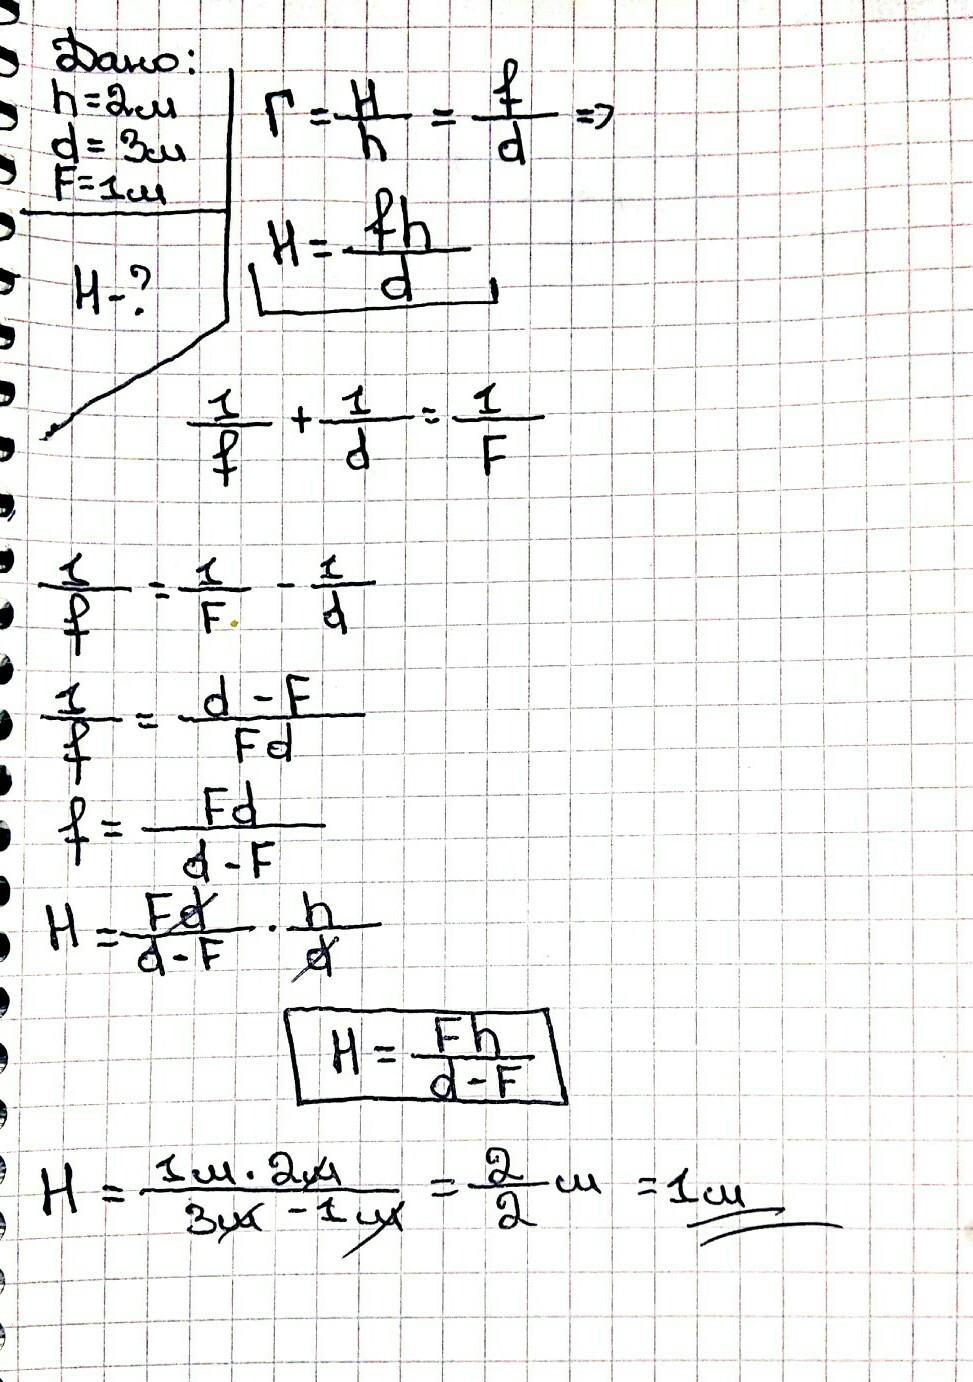 Дано:
h=2м
d=3м
F=1м
H-?
Г = H/h = f/d =>
H = fh/d
1/f + 1/d = 1/F
1/f = 1/F - 1/d
1/f = d-F/Fd
f = Fd/d-F
H = Fd/d-F · h/d
H = Fh/d-F
H = 1м·2м/3м-1м = 2/2 м = 1м